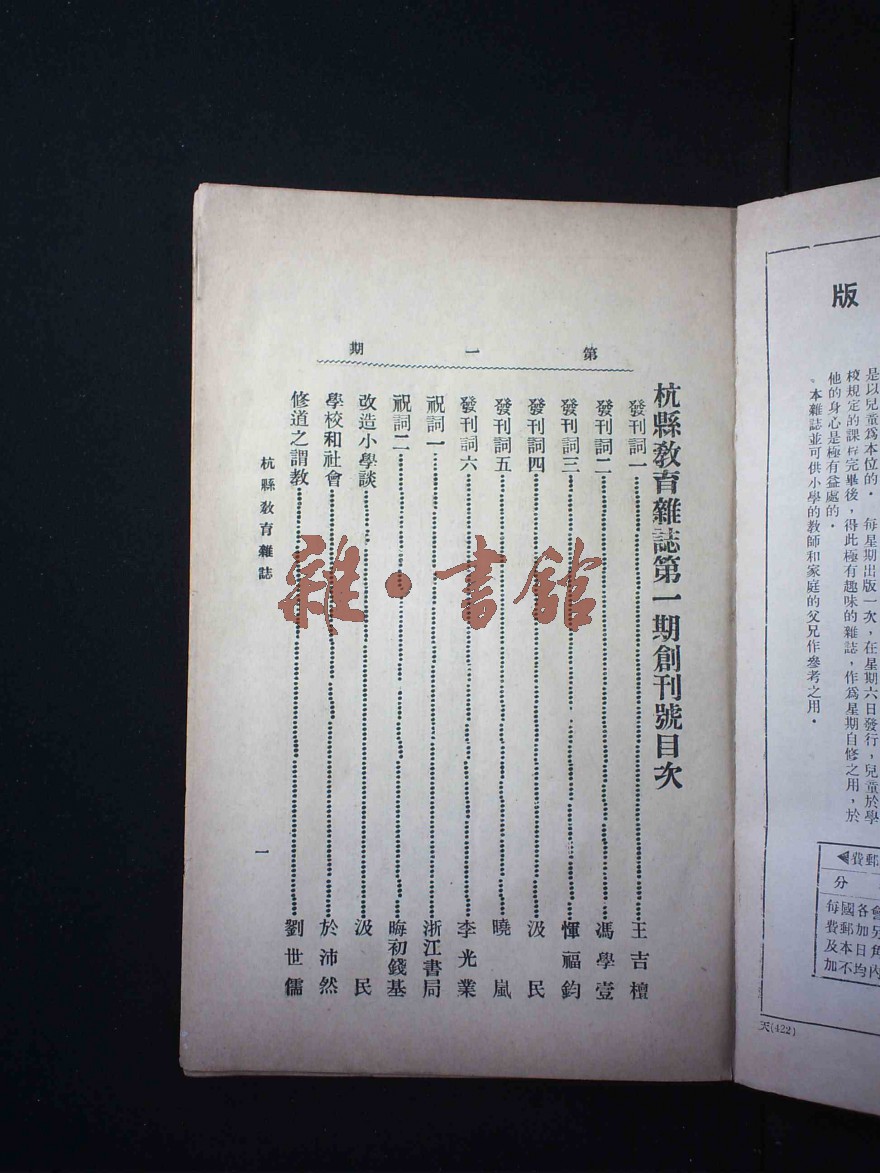 版
是以兒童爲本位的．　每星期出版一次，在星期六日發行，兒童於學
校規定的課程完畢後，得此極有趣味的雜誌，作爲星期自修之用，於
他的身心是極有益處的．
、本雜誌並可供小學的教師和家庭的父兄作參考之用．
費郵
分
每國各會
費郵加另
及本日角
加不均內
天(422)
第一期
杭縣教育雜誌第一期創刊號目次
發刊詞一……王吉檀
發刊詞二……馮學壹
發刊詞三……惲福鈞
發刊詞四……汲民
發刊詞五……曉嵐
發刊詞六……李光業
祝詞一……浙江書局
祝詞二……晦初錢基
改造小學談……汲民
學校和社會……於沛然
修道之謂教……劉世儒
杭縣教育雜誌
一
雜·書館